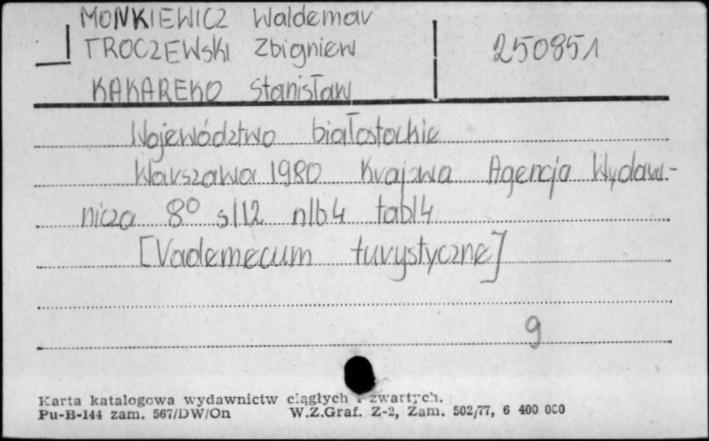 MONKIEWICZ Waldemar
TROCZEWSKI Zbigniew 250851
KAKAREKO Stanisław
Województwo białostockie
Warszawa 1980 Krajowa Agencja Wydaw.-
nicza 8° s112 nlb4 tabl4
[Vademecum turystyczne]
9
Karta katalogowa wydawnictw ciągłych i zwartych.
Pu-B-144 zam. 567/DW/On W.Z.Graf. Z-2, Zam. 502/77, 6 400 000